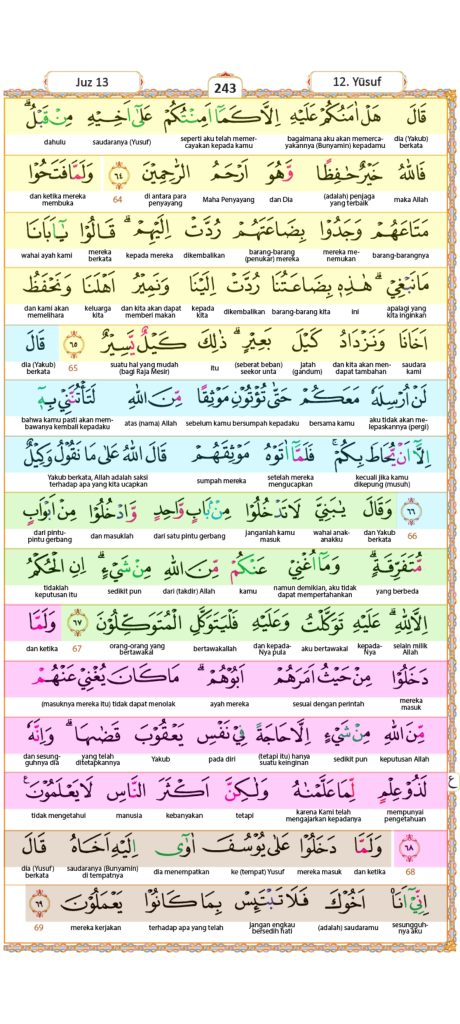 Juz 13 243 12. Yūsuf
قَالَ هَلْ اٰمَنُكُمْ عَلَيْهِ اِلَّا كَمَآ اَمِنْتُكُمْ عَلٰٓى اَخِيْهِ مِنْ قَبْلُۗ
dia (Yakub) berkata bagaimana aku akan memercayakannya (Bunyamin) kepadamu seperti aku telah memercayakan kepada kamu saudaranya (Yusuf) dahulu
فَاللّٰهُ خَيْرٌ حٰفِظًا وَّهُوَ اَرْحَمُ الرّٰحِمِيْنَ ٦٤ وَلَمَّا فَتَحُوْا
maka Allah (adalah) penjaga yang terbaik dan Dia Maha Penyayang di antara para penyayang 64 dan ketika mereka membuka
مَتَاعَهُمْ وَجَدُوْا بِضَاعَتَهُمْ رُدَّتْ اِلَيْهِمْۗ قَالُوْا يٰٓاَبَانَا
barang-barangnya mereka menemukan barang-barang (penukar) mereka dikembalikan kepada mereka mereka berkata wahai ayah kami
مَا نَبْغِيْۗ هٰذِهٖ بِضَاعَتُنَا رُدَّتْ اِلَيْنَا وَنَمِيْرُ اَهْلَنَا وَنَحْفَظُ
apalagi yang kita inginkan ini barang-barang kita dikembalikan kepada kita dan kita akan dapat memberi makan keluarga kita dan kami akan memelihara
اَخَانَا وَنَزْدَادُ كَيْلَ بَعِيْرٍۗ ذٰلِكَ كَيْلٌ يَّسِيْرٌ ٦٥ قَالَ
saudara kami dan kita akan mendapat tambahan Jatah (gandum) (seberat beban) seekor unta itu suatu hal yang mudah (bagi Raja Mesir) 65 dia (Yakub) berkata
لَنْ اُرْسِلَهٗ مَعَكُمْ حَتّٰى تُؤْتُوْنِ مَوْثِقًا مِّنَ اللّٰهِ لَتَأْتُنَّنِيْ بِهٖٓ
aku tidak akan melepaskannya (pergi) bersama kamu sebelum kamu bersumpah kepadaku atas (nama) Allah bahwa kamu pasti akan membawanya kembali kepadaku
اِلَّآ اَنْ يُّحَاطَ بِكُمْۚ فَلَمَّآ اٰتَوْهُ مَوْثِقَهُمْ قَالَ اللّٰهُ عَلٰى مَا نَقُوْلُ وَكِيْلٌ
kecuali jika kamu dikepung (musuh) setelah mereka mengucapkan sumpah mereka Yakub berkata, Allah adalah saksi terhadap apa yang kita ucapkan
٦٦ وَقَالَ يٰبَنِيَّ لَا تَدْخُلُوْا مِنْۢ بَابٍ وَّاحِدٍ وَّادْخُلُوْا مِنْ اَبْوَابٍ
66 dan Yakub berkata wahai anak-anakku janganlah kamu masuk dari satu pintu gerbang dan masuklah dari pintu-pintu gerbang
مُّتَفَرِّقَةٍۗ وَمَآ اُغْنِيْ عَنْكُمْ مِّنَ اللّٰهِ مِنْ شَيْءٍۗ اِنِ الْحُكْمُ
yang berbeda namun demikian, aku tidak dapat mempertahankan kamu dari (takdir) Allah sedikit pun tidaklah keputusan itu
اِلَّا لِلّٰهِۗ عَلَيْهِ تَوَكَّلْتُ وَعَلَيْهِ فَلْيَتَوَكَّلِ الْمُتَوَكِّلُوْنَ ٦٧ وَلَمَّا
selain milik Allah kepada-Nya aku bertawakal dan kepada-Nya pula bertawakallah orang-orang yang bertawakal 67 dan ketika
دَخَلُوْا مِنْ حَيْثُ اَمَرَهُمْ اَبُوْهُمْۗ مَا كَانَ يُغْنِيْ عَنْهُمْ
mereka masuk sesuai dengan perintah ayah mereka (masuknya mereka itu) tidak dapat menolak
مِّنَ اللّٰهِ مِنْ شَيْءٍ اِلَّا حَاجَةً فِيْ نَفْسِ يَعْقُوْبَ قَضٰىهَاۗ وَاِنَّهٗ
keputusan Allah sedikit pun (tetapi itu) hanya suatu keinginan pada diri Yakub yang telah ditetapkannya dan sesungguhnya dia
لَذُوْ عِلْمٍ لِّمَا عَلَّمْنٰهُ وَلٰكِنَّ اَكْثَرَ النَّاسِ لَا يَعْلَمُوْنَ ࣖ ع
mempunyai pengetahuan karena Kami telah mengajarkan kepadanya tetapi kebanyakan manusia tidak mengetahui
٦٨ وَلَمَّا دَخَلُوْا عَلٰى يُوْسُفَ اٰوٰٓى اِلَيْهِ اَخَاهُ قَالَ
68 dan ketika mereka masuk ke (tempat) Yusuf dia menempatkan saudaranya (Bunyamin) di tempatnya dia (Yusuf) berkata
اِنِّيْٓ اَنَا۠ اَخُوْكَ فَلَا تَبْتَىِٕسْ بِمَا كَانُوْا يَعْمَلُوْنَ ٦٩
sesungguhnya aku (adalah) saudaramu jangan engkau bersedih hati terhadap apa yang telah mereka kerjakan 69